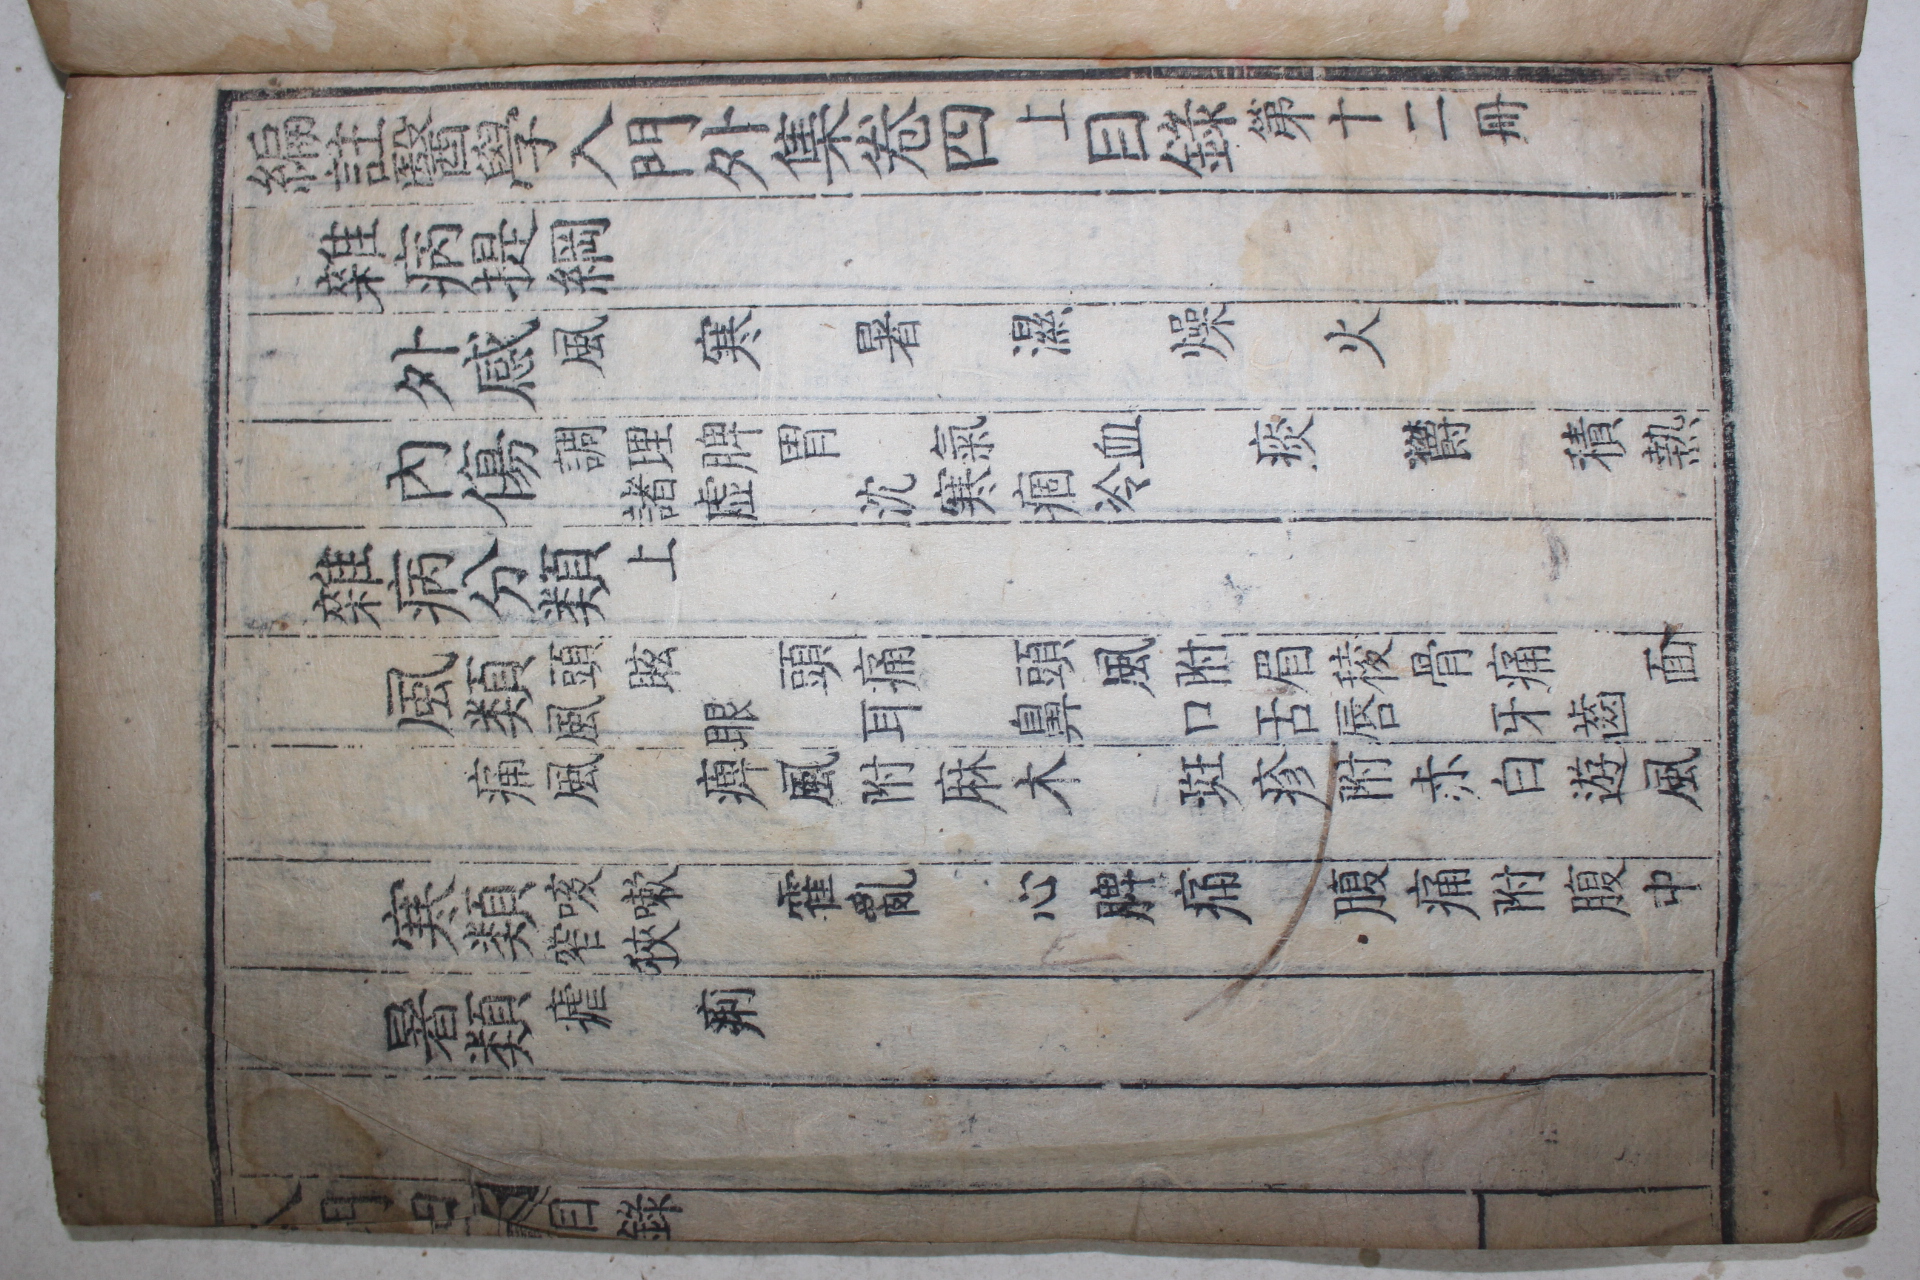 編註醫學入門外集卷四上目錄第十二冊
雜病提綱
外感 風 寒 暑 濕 燥 火
內傷 調理脾胃 氣 血 痰 鬱 積熱
諸虛 沈寒痼冷
雜病分類上
風類 頭眩 頭痛 頭風附眉稜骨痛 面
風 眼 耳 鼻 口舌唇 牙齒
痛風 痺風附麻木 斑疹附赤白遊風
寒類 咳嗽 霍亂 心脾痛 腹痛附腹中
窄狹
暑類 瘧 痢
入門 目錄